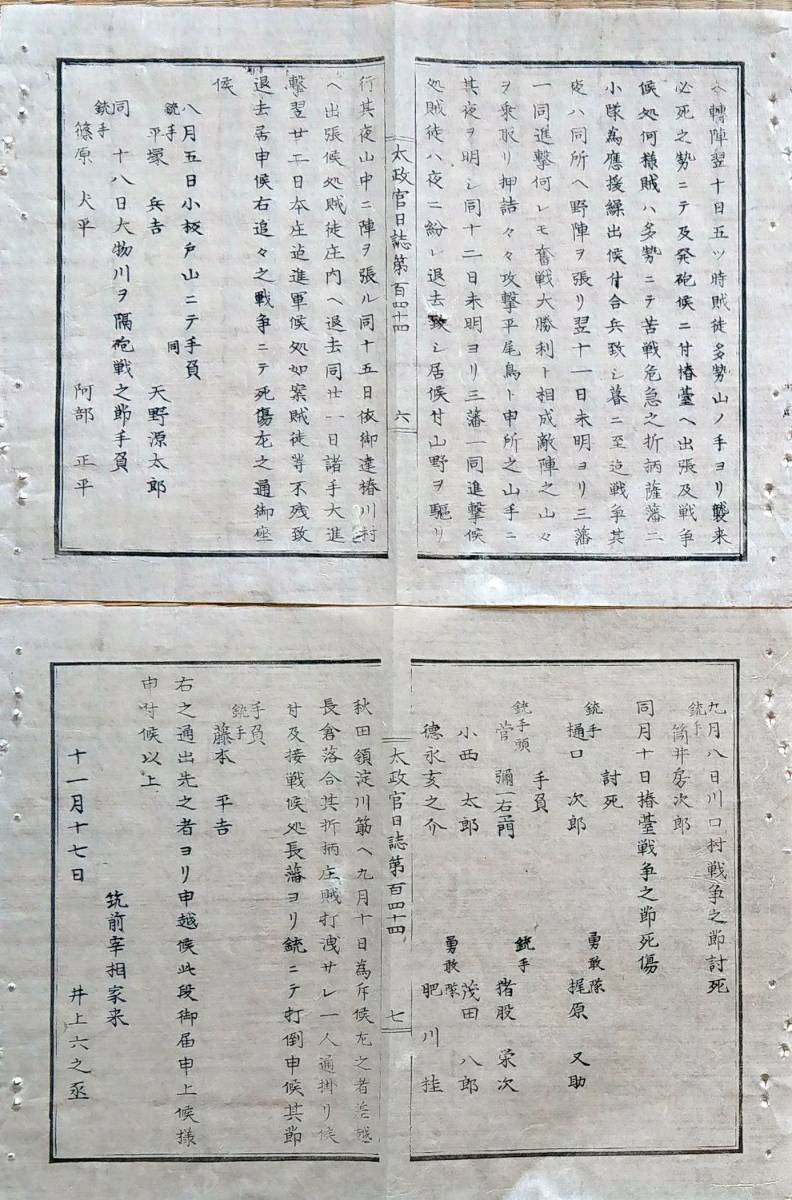 轉陣翌十日五ツ時賊徒多勢山ノ手ヨリ襲来
必死之勢ニテ及発砲候ニ付椿臺ヘ出張及戦争
候処何様賊ハ多勢ニテ苦戦危急之折柄薩藩二
小隊為應援繰出候付合兵致シ暮ニ至迠戦争其
夜ハ同所ヘ野陣ヲ張リ翌十一日未明ヨリ三藩
一同進撃何レモ奮戦大勝利ト相成敵陣之山々
ヲ乗取リ押詰々々攻撃平尾鳥ト申所之山手ニ
其夜ヲ明シ同十二日未明ヨリ三藩一同進撃候
処賊徒ハ夜ニ紛レ退去致シ居候付山野ヲ駆リ
太政官日誌第百四十四
六
行其夜山中ニ陣ヲ張ル同十五日依御達椿川村
ヘ出張候処賊徒庄内ヘ退去同廿一日諸手大進
撃翌廿二日本庄迠進軍候処如案賊徒等不残致
退去居申候右追々之戦争ニテ死傷左之通御座
候
八月五日小坂戸山ニテ手負
銃手 平塚 兵吉
同 天野源太郎
同 十八日大物川ヲ隔砲戦之節手負
銃手 篠原 犬平
阿部 正平
九月八日川口村戦争之節討死
銃手 筒井房次郎
同月十日椿臺戦争之節死傷
討死
銃手 樋口 次郎
勇敢隊 梶原 又助
手負
銃手頭 菅 彌一右エ門
銃手 猪股 栄次
小西 太郎
茂田 八郎
徳永亥之介
勇敢隊 肥川 挂
太政官日誌第百四十四
七
秋田領淀川筋ヘ九月十日為斥候左之者差越
長倉落合其折柄庄賊打洩サレ一人通掛リ候
付及接戦候処長藩ヨリ銃ニテ打倒申候其節
手負
銃手 藤本 平吉
右之通出先之者ヨリ申越候此段御届申上候様
申付候以上
十一月十七日
筑前宰相家来
井上六之丞